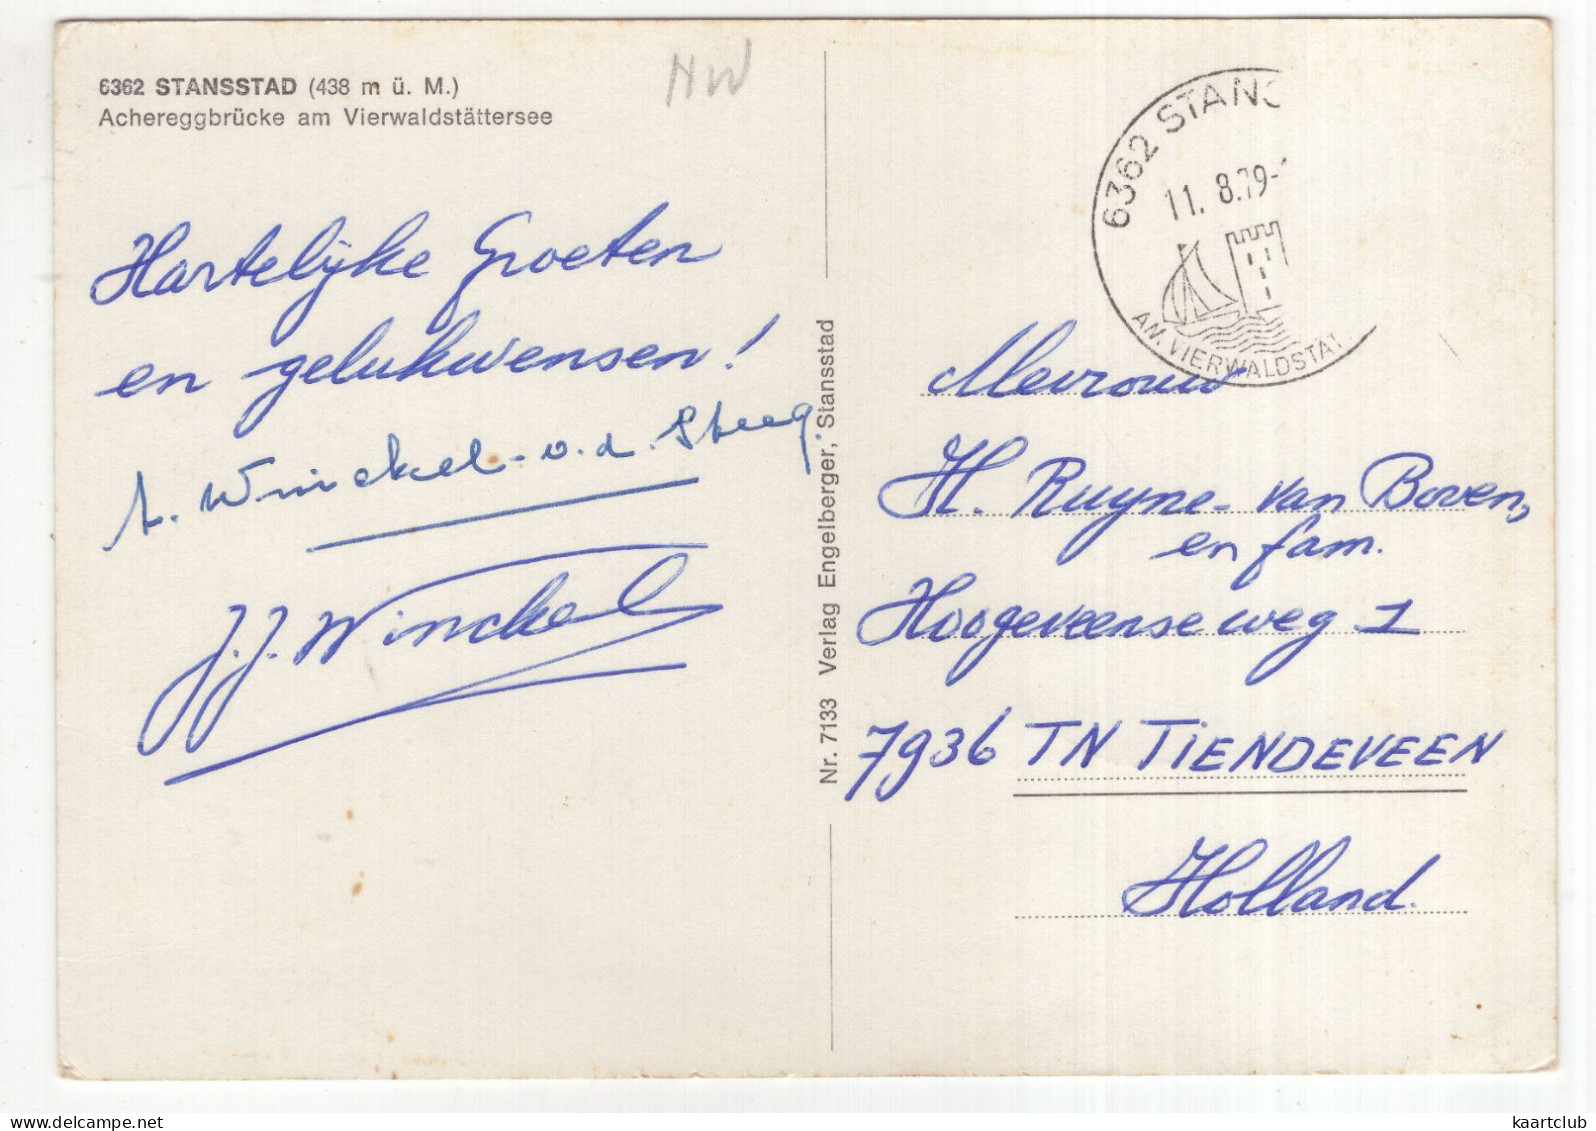 6362 STANSSTAD (438 m ü. M.)
Achereggbrücke am Vierwaldstättersee
NW
Hartelijke Groeten
en gelukwensen!
A. Winckel-v.d. Steeg.
J.J. Winckel
Nr. 7133 Verlag Engelberger, Stansstad
6362 STANS
11. 8.79-
AM VIERWALDSTÄT
Mevrouw
H. Ruyne-van Boven,
en fam.
Hoogeveenseweg 1
7936 TN TIENDEVEEN
Holland.
www.delcampe.net
kaartclub